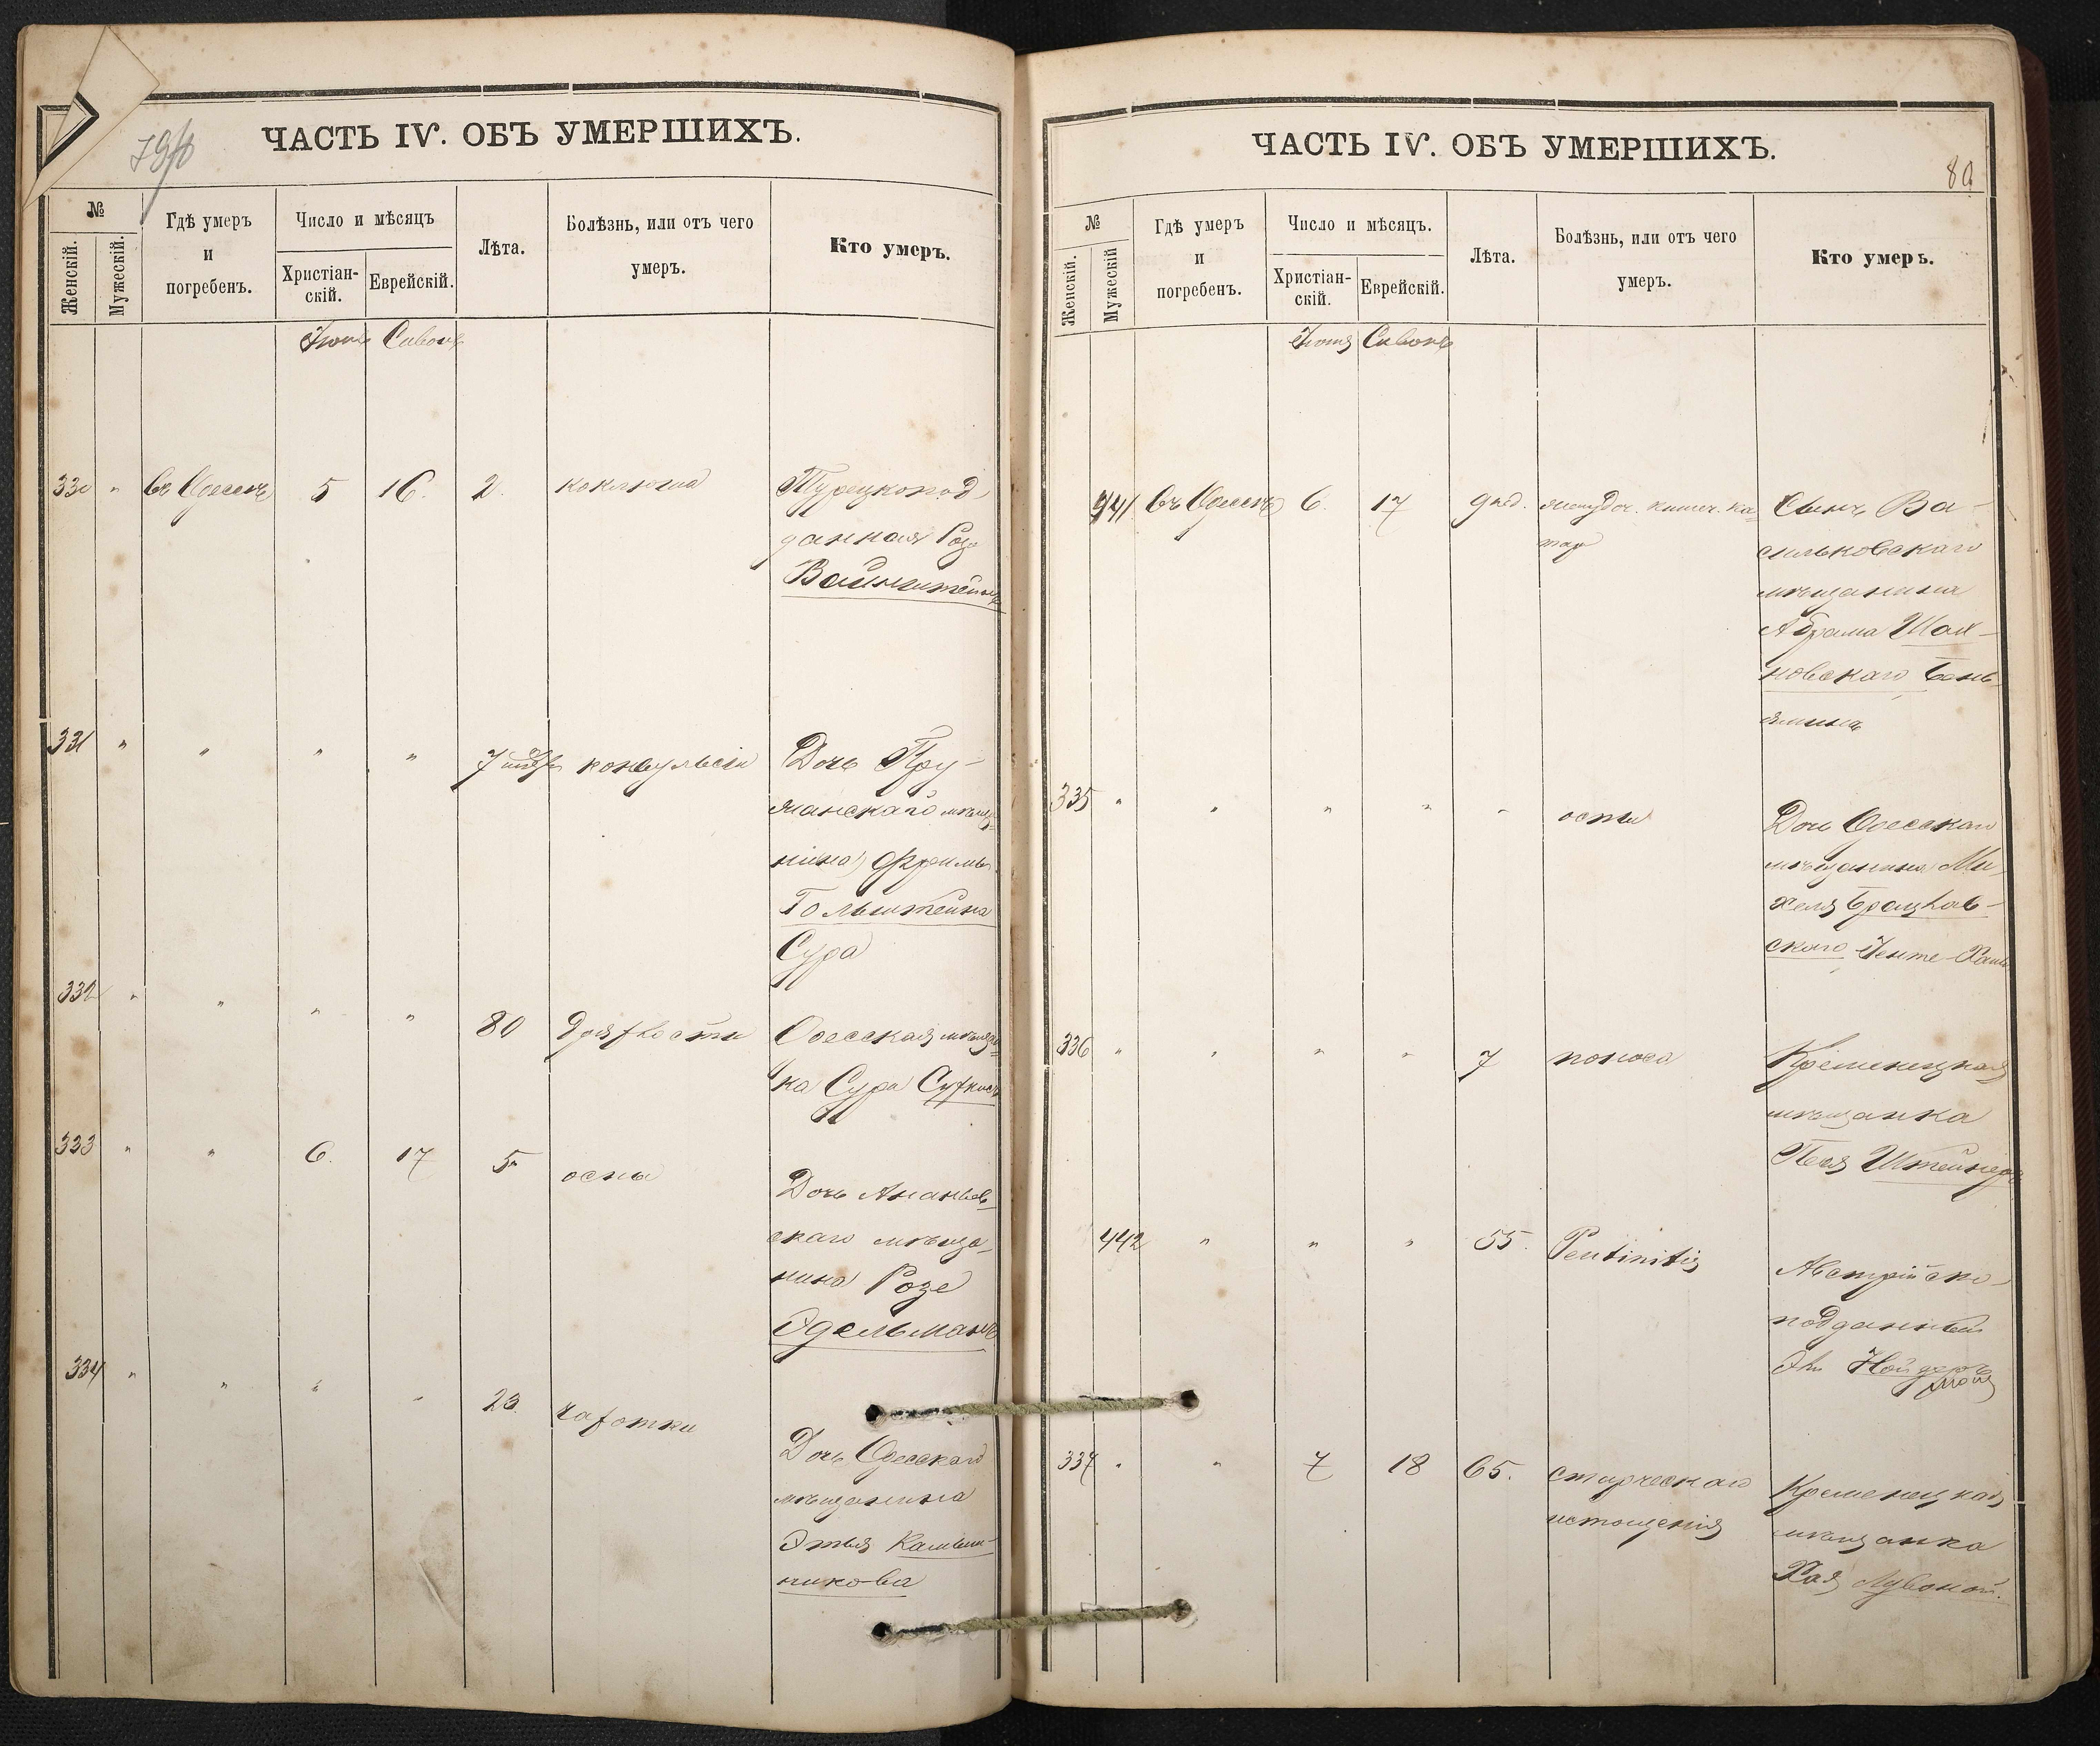 ЧАСТЬ IV. ОБЪ УМЕРШИХЪ.
№
Женскій.
Мужескій.
Гдѣ умеръ
и
погребенъ.
Число и мѣсяцъ
Христіан-
скій.
Еврейскій.
Лѣта.
Болѣзнь, или отъ чего
умеръ.
Кто умеръ.
Іюнь Сивонъ
330 " въ Одессѣ 5 16. 2. коклюша Турецкопод-
данная Роза
Вайнштейнъ
331 " " " " 7 конвульсіи Дочь Пру-
жанскаго мѣща-
нина Фроима
Гольштейна
Сура
332 " " " " 80 дряхлости Одесская мѣщан-
ка Сура
333 " " 6. 17 5 оспы Дочь Ананьев-
скаго мѣща-
нина Розе
Эдельманъ
334 " " " " 23. чахотки Дочь Одесскаго
мѣщанина
Этья
никова
ЧАСТЬ IV. ОБЪ УМЕРШИХЪ.
80
№
Женскій.
Мужескій
Гдѣ умеръ
и
погребенъ.
Число и мѣсяцъ.
Христіан-
скій.
Еврейскій.
Лѣта.
Болѣзнь, или отъ чего
умеръ.
Кто умеръ.
Іюня Сивонъ
441 въ Одессѣ 6. 17 желудоч. кишеч. ка- Сынъ Ва-
таръ сильковскаго
мѣщанина
Абрама
новскаго Бень-
яминъ
335 " " " " " оспы Дочь Одесскаго
мѣщанина Ми-
хеля Брацлав-
скаго Генте-
336 " " " " 7 поноса Кременецкая
мѣщанка
Песя Штейнеръ
442 " " " 55. Австрійско-
подданный
337 " " 7 18 65. старческаго Кременецкая
истощенія мѣщанка
Хая